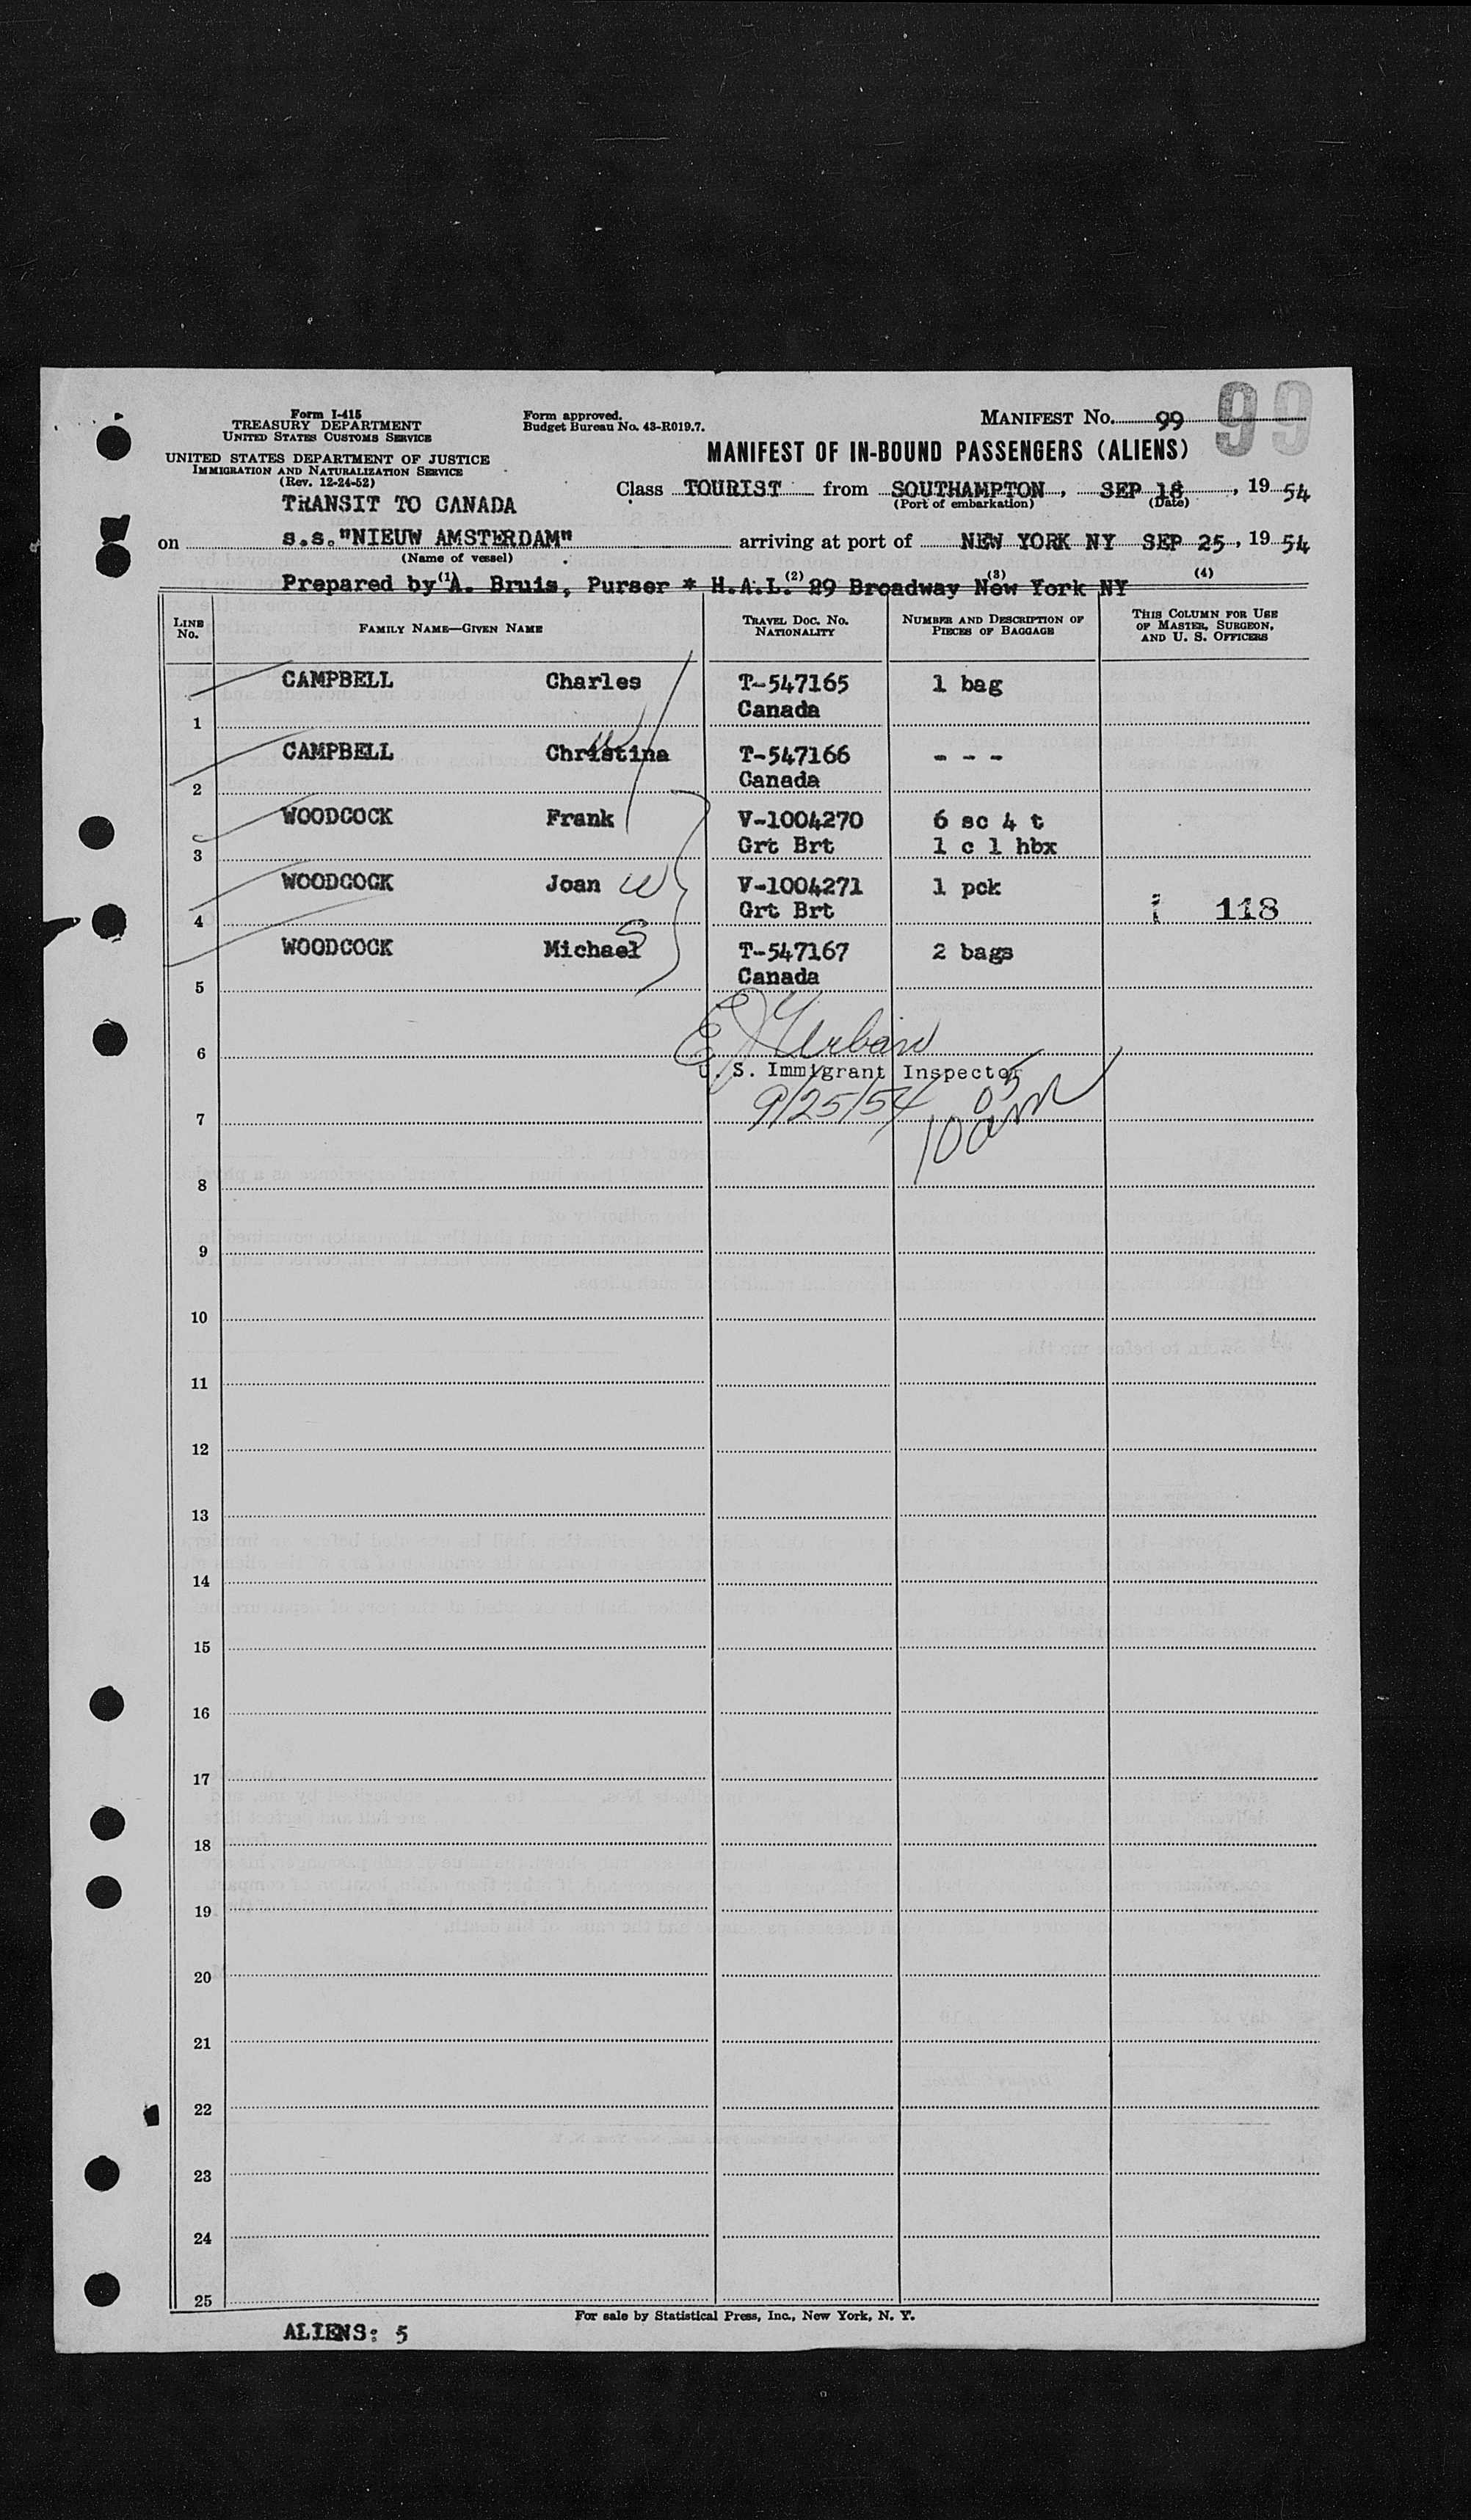 Form I-415
TREASURY DEPARTMENT
UNITED STATES CUSTOMS SERVICE
UNITED STATES DEPARTMENT OF JUSTICE
IMMIGRATION AND NATURALIZATION SERVICE
(Rev. 12-24-52)
Form approved.
Budget Bureau No. 43-R019.7.
MANIFEST NO. 99
99
MANIFEST OF IN-BOUND PASSENGERS (ALIENS)
Class TOURIST from SOUTHAMPTON, SEP 18, 1954
(Port of embarkation) (Date)
TRANSIT TO CANADA
on s.s."NIEUW AMSTERDAM" arriving at port of NEW YORK NY SEP 25, 1954
(Name of vessel)
Prepared by A. Bruis, Purser * H.A.L. 29 Broadway New York NY
(1) (2) (3) (4)
LINE NO. FAMILY NAME—GIVEN NAME TRAVEL DOC. NO. NATIONALITY NUMBER AND DESCRIPTION OF PIECES OF BAGGAGE THIS COLUMN FOR USE OF MASTER, SURGEON, AND U. S. OFFICERS
CAMPBELL Charles T-547165 1 bag
1 Canada
CAMPBELL Christina W T-547166 - - -
2 Canada
WOODCOCK Frank V-1004270 6 sc 4 t
3 Grt Brt 1 c 1 hbx
WOODCOCK Joan W V-1004271 1 pck
4 Grt Brt 118
WOODCOCK Michael S T-547167 2 bags
5 Canada
6 Urban
U. S. Immigrant Inspector
7 9/25/54 10 05 am
8
9
10
11
12
13
14
15
16
17
18
19
20
21
22
23
24
25
For sale by Statistical Press, Inc., New York, N. Y.
ALIENS: 5